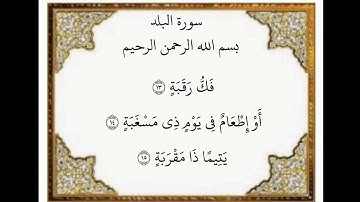 سورة البلد
بسم الله الرحمن الرحيم
فَكُّ رَقَبَةٍ ١٣
أَوْ إِطْعَامٌ فِى يَوْمٍ ذِى مَسْغَبَةٍ ١٤
يَتِيمًا ذَا مَقْرَبَةٍ ١٥